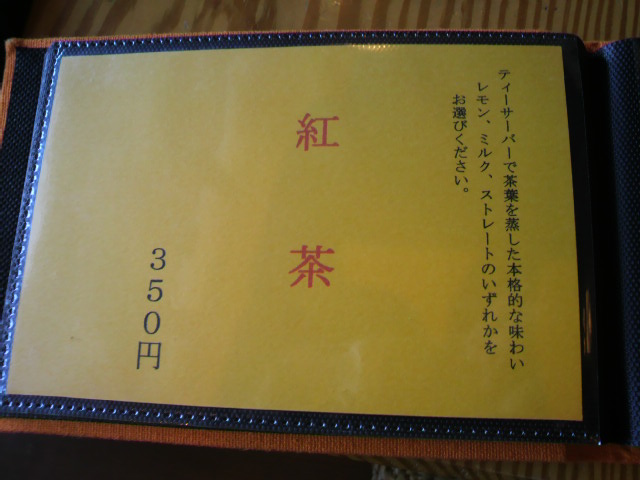 ティーサーバーで茶葉を蒸した本格的な味わい
レモン、ミルク、ストレートのいずれかを
お選びください。
紅茶
３５０円